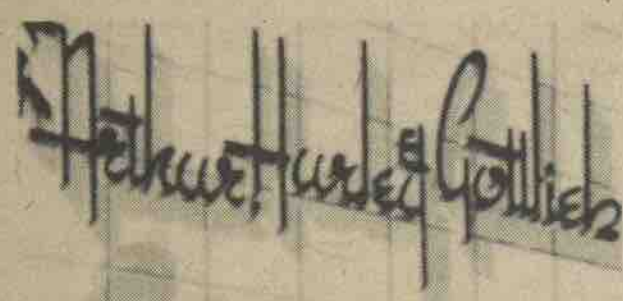 Arthur Hurley Gottlieb